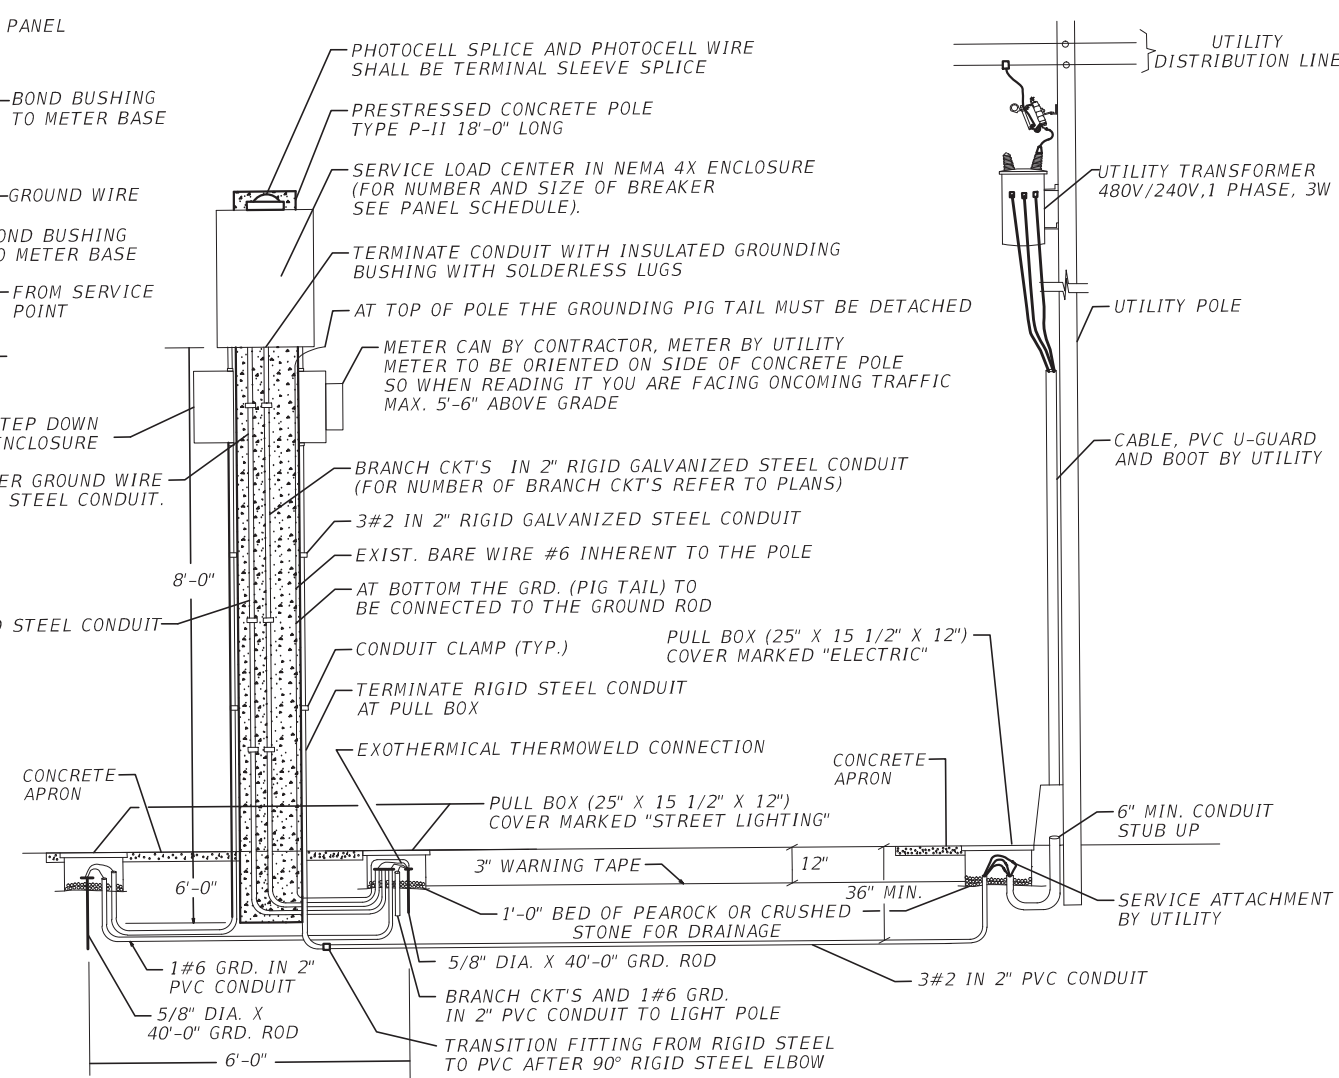 PANEL
BOND BUSHING
TO METER BASE
GROUND WIRE
OND BUSHING
O METER BASE
FROM SERVICE
POINT
TEP DOWN
ENCLOSURE
ER GROUND WIRE
STEEL CONDUIT.
8'-0"
D STEEL CONDUIT
CONCRETE
APRON
6'-0"
1#6 GRD. IN 2"
PVC CONDUIT
5/8" DIA. X
40'-0" GRD. ROD
6'-0"
PHOTOCELL SPLICE AND PHOTOCELL WIRE
SHALL BE TERMINAL SLEEVE SPLICE
PRESTRESSED CONCRETE POLE
TYPE P-II 18'-0" LONG
SERVICE LOAD CENTER IN NEMA 4X ENCLOSURE
(FOR NUMBER AND SIZE OF BREAKER
SEE PANEL SCHEDULE).
TERMINATE CONDUIT WITH INSULATED GROUNDING
BUSHING WITH SOLDERLESS LUGS
AT TOP OF POLE THE GROUNDING PIG TAIL MUST BE DETACHED
METER CAN BY CONTRACTOR, METER BY UTILITY
METER TO BE ORIENTED ON SIDE OF CONCRETE POLE
SO WHEN READING IT YOU ARE FACING ONCOMING TRAFFIC
MAX. 5'-6" ABOVE GRADE
BRANCH CKT'S IN 2" RIGID GALVANIZED STEEL CONDUIT
(FOR NUMBER OF BRANCH CKT'S REFER TO PLANS)
3#2 IN 2" RIGID GALVANIZED STEEL CONDUIT
EXIST. BARE WIRE #6 INHERENT TO THE POLE
AT BOTTOM THE GRD. (PIG TAIL) TO
BE CONNECTED TO THE GROUND ROD
CONDUIT CLAMP (TYP.)
TERMINATE RIGID STEEL CONDUIT
AT PULL BOX
EXOTHERMICAL THERMOWELD CONNECTION
PULL BOX (25" X 15 1/2" X 12")
COVER MARKED "STREET LIGHTING"
3" WARNING TAPE
12"
36" MIN.
1'-0" BED OF PEAROCK OR CRUSHED
STONE FOR DRAINAGE
5/8" DIA. X 40'-0" GRD. ROD
BRANCH CKT'S AND 1#6 GRD.
IN 2" PVC CONDUIT TO LIGHT POLE
TRANSITION FITTING FROM RIGID STEEL
TO PVC AFTER 90° RIGID STEEL ELBOW
UTILITY
DISTRIBUTION LINE
UTILITY TRANSFORMER
480V/240V,1 PHASE, 3W
UTILITY POLE
CABLE, PVC U-GUARD
AND BOOT BY UTILITY
PULL BOX (25" X 15 1/2" X 12")
COVER MARKED "ELECTRIC"
CONCRETE
APRON
6" MIN. CONDUIT
STUB UP
SERVICE ATTACHMENT
BY UTILITY
3#2 IN 2" PVC CONDUIT